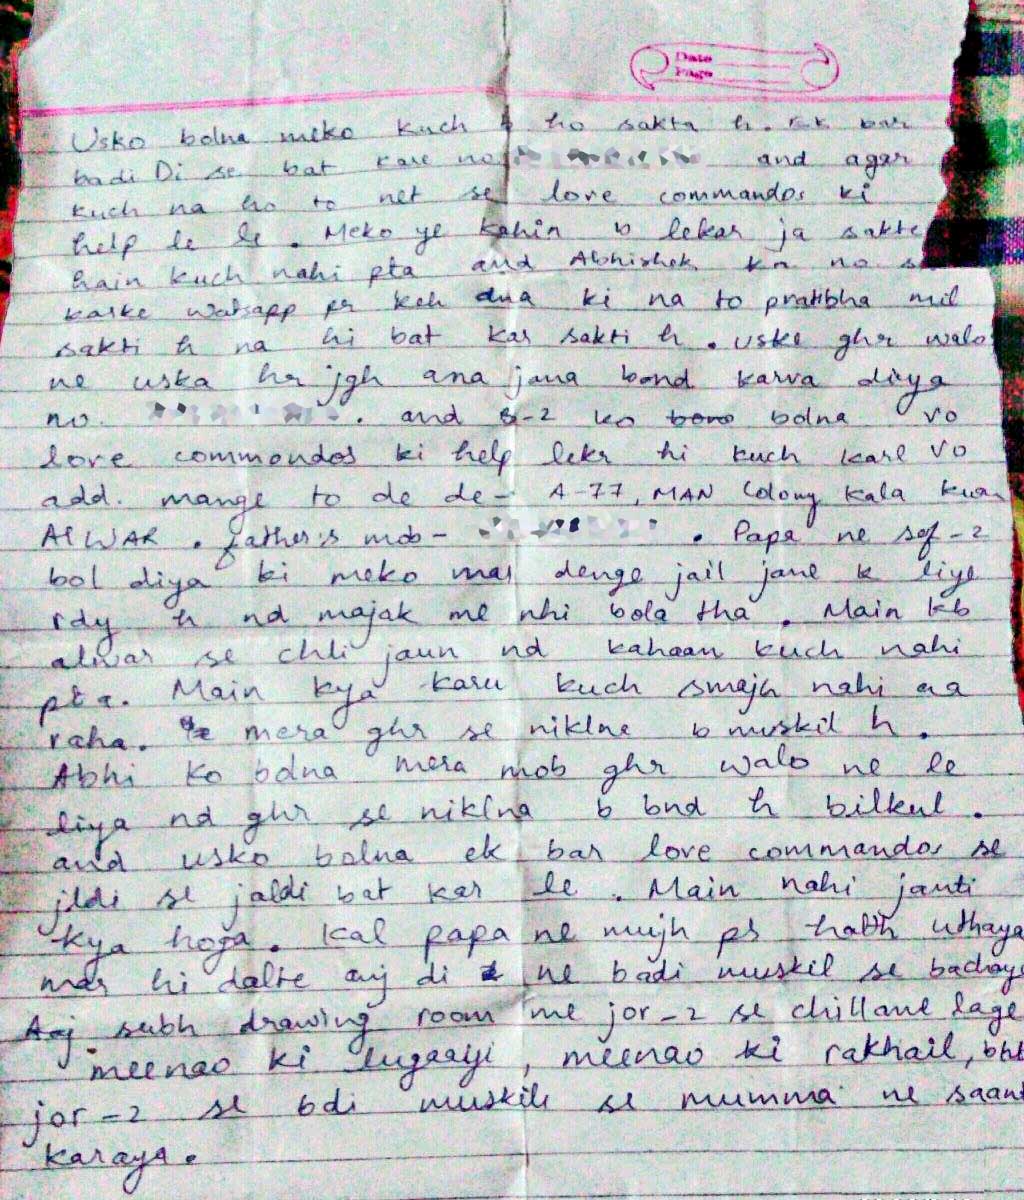 Date
Page
Usko bolna meko kuch b ho sakta h. Ek bar
badi Di se bat kare no and agar
kuch na ho to net se love commandos ki
help le le. Meko ye kahin b lekar ja sakte
hain kuch nahi pta and Abhishek ka no s
karke watsapp pr keh dna ki na to pratibha mil
sakti h na hi bat kar sakti h. uske ghr walo
ne uska hr jgh ana jana band karva diya
no. . and S-2 ko bolna vo
love commandos ki help lekr hi kuch kare vo
add. mange to de de - A-77, MAN Colony kala kua
ALWAR. father's mob- . Papa ne saf-2
bol diya ki meko mar denge jail jane k liye
rdy h nd majak me nhi bola tha. Main kb
alwar se chli jaun nd kahaan kuch nahi
pta. Main kya karu kuch smajh nahi aa
raha. mera ghr se niklne b muskil h.
Abhi ko bolna mera mob ghr walo ne le
liya nd ghr se niklna b bnd h bilkul.
and usko bolna ek bar love commandos se
jldi se jaldi bat kar le. Main nahi janti
kya hoga. Kal papa ne mujh pr hath uthaya
mar hi dalte aaj di ne badi muskil se bachaya
Aaj subh drawing room me jor-2 se chillane lage
meenao ki lugaayi, meenao ki rakhail, bht
jor-2 se bdi muskil se mumma ne saant
karaya.